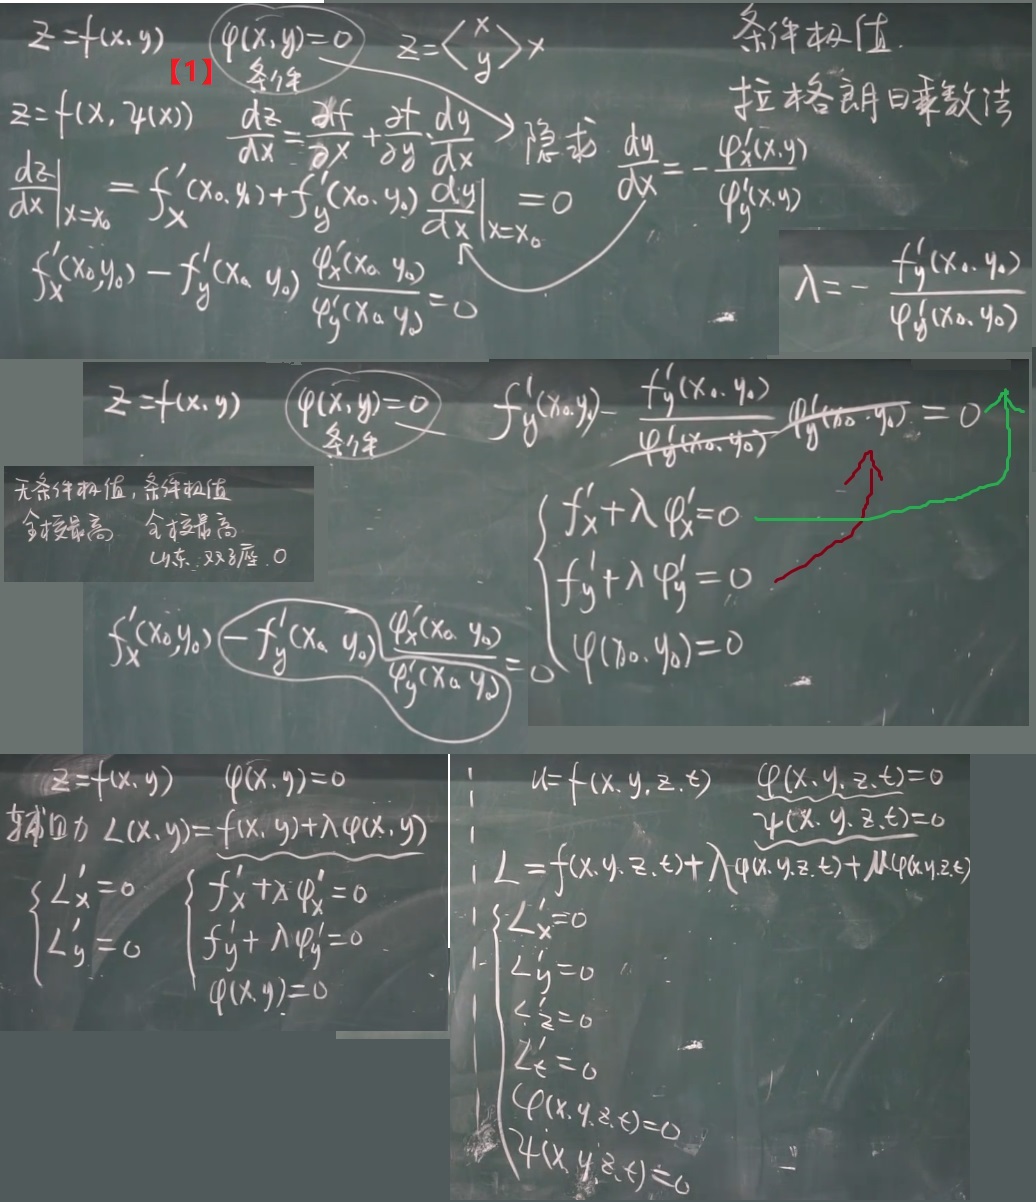 z=f(x,y) φ(x,y)=0 z=<x y>x 条件极值.
【1】 条件
拉格朗日乘数法
z=f(x,ψ(x)) dz/dx=∂f/∂x+∂f/∂y·dy/dx 隐求 dy/dx=-φ'x(x,y)/φ'y(x,y)
dz/dx|x=x₀=f'x(x₀,y₀)+f'y(x₀,y₀)dy/dx|x=x₀=0
f'x(x₀,y₀)-f'y(x₀,y₀)φ'x(x₀,y₀)/φ'y(x₀,y₀)=0
λ=-f'y(x₀,y₀)/φ'y(x₀,y₀)
z=f(x,y) φ(x,y)=0 f'y(x₀,y₀)-f'y(x₀,y₀)/φ'y(x₀,y₀)φ'y(x₀,y₀)=0
条件
无条件极值,条件极值
全校最高 全校最高
山东.双子座.0
f'x+λφ'x=0
f'y+λφ'y=0
φ(x₀,y₀)=0
f'x(x₀,y₀)-f'y(x₀,y₀)φ'x(x₀,y₀)/φ'y(x₀,y₀)=0
z=f(x,y) φ(x,y)=0
L(x,y)=f(x,y)+λφ(x,y)
L'x=0 f'x+λφ'x=0
L'y=0 f'y+λφ'y=0
φ(x,y)=0
u=f(x,y,z,t) φ(x,y,z,t)=0
ψ(x,y,z,t)=0
L=f(x,y,z,t)+λφ(x,y,z,t)+μφ(x,y,z,t)
L'x=0
L'y=0
L'z=0
L't=0
φ(x,y,z,t)=0
ψ(x,y,z,t)=0